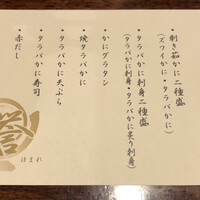 ・剥き茹かに二種盛
(ズワイかに・タラバかに)
・タラバかに刺身二種盛
(タラバかに刺身・タラバかに炙り刺身)
・かにグラタン
・焼タラバかに
・タラバかに天ぷら
・タラバかに寿司
・赤だし
誉
ほまれ